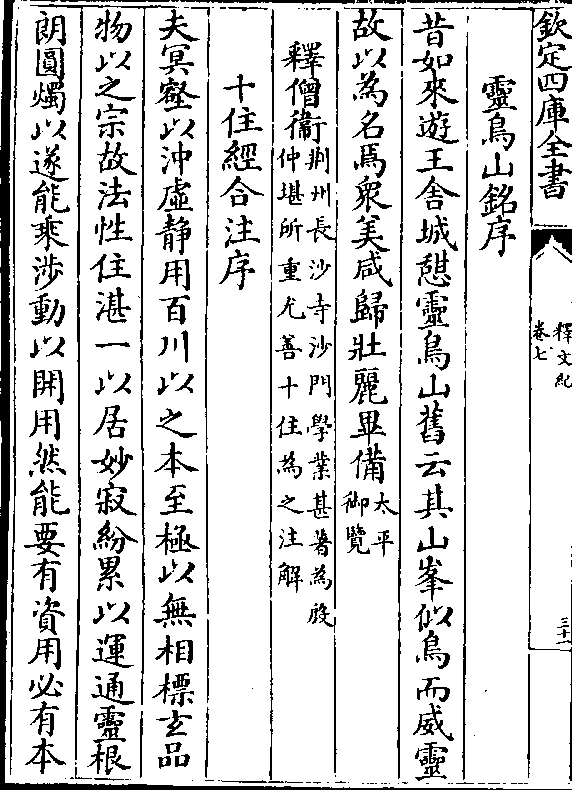 欽定四庫全書
釋文紀
卷七
三十一
靈鳥山銘序
昔如來遊王舎城憇靈鳥山舊云其山峯似鳥而威靈
故以為名焉衆美咸歸壯麗畢備太平
御覽
釋僧衞荆州長沙寺沙門學業甚著為殷
仲堪所重尤善十住為之注解
十住經合注序
夫冥壑以沖虛静用百川以之本至極以無相標𤣥品
物以之宗故法性住湛一以居妙寂紛累以運通靈根
朗圓燭以遂能乗涉動以開用然能要有資用必有本